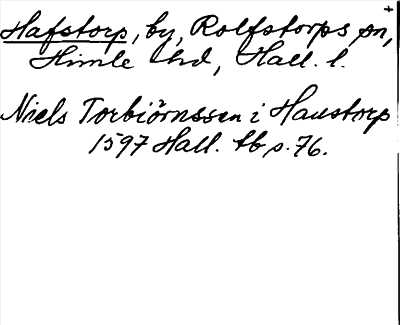 Hafstorp, by, Rolfstorps sn,
Himle hd, Hall. l.
Niels Torbiörnssen i Haustorp
1597 Hall. tb s. 76.